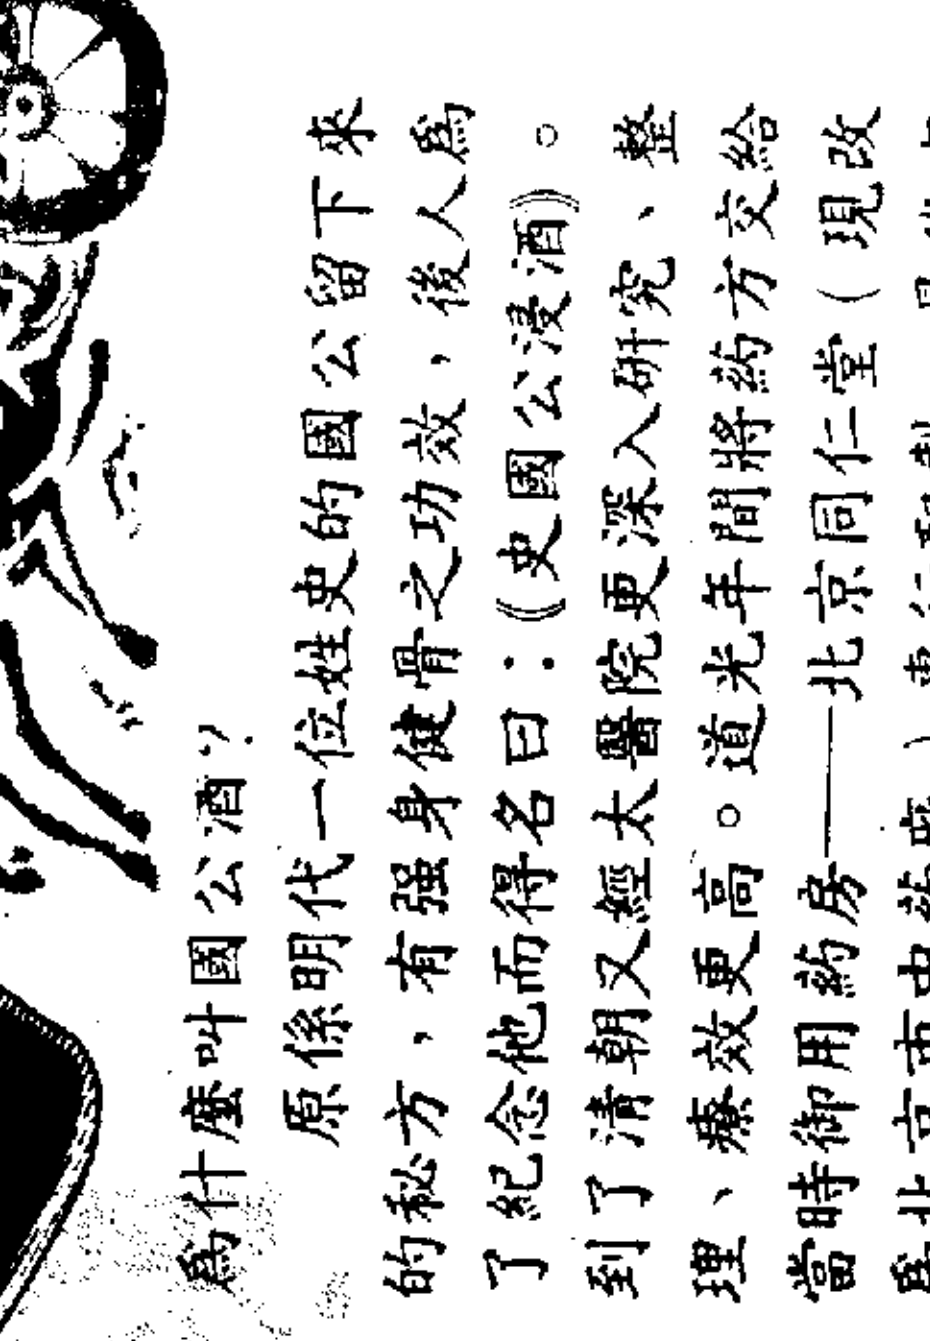 為什麼叫國公酒?
原係明代一位姓史的國公留下來
的秘方，有强身健骨之功效，後人為
了紀念他而得名曰：《史國公浸酒》。
到了清朝又經太醫院更深入研究、整
理、療效更高。道光年間將葯方交給
當時御用葯房——北京同仁堂（現改
為北京市中葯